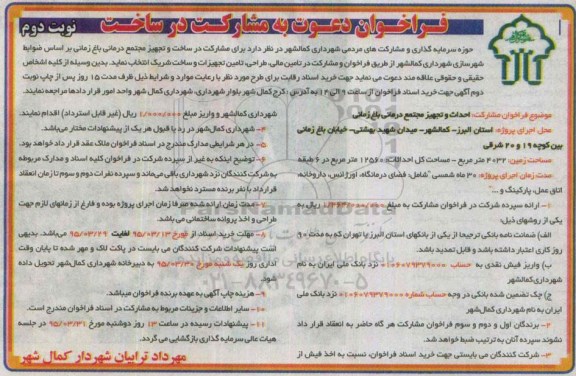 فراخوان دعوت به مشارکت در ساخت
نوبت دوم
حوزه سرمایه گذاری و مشارکت های مردمی شهرداری کمالشهر در نظر دارد برای مشارکت در ساخت و تجهیز مجتمع درمانی باغ زمانی بر اساس ضوابط
شهرسازی شهرداری کمالشهر از طریق فراخوان و مشارکت در تامین مالی، طراحی، تامین تجهیزات و ساخت شریک انتخاب نماید. بدین وسیله از کلیه اشخاص
حقیقی و حقوقی علاقه مند دعوت می نماید جهت خرید اسناد رقابت برای طرح مورد نظر با رعایت موارد و شرایط ذیل ظرف مدت ۱۵ روز پس از چاپ نوبت
دوم آگهی جهت خرید اسناد فراخوان از ساعت ۹ الی ۱۳ به آدرس: کرج کمال شهر بلوار شهرداری، شهرداری کمال شهر واحد امور قراردادها مراجعه نمایند.
موضوع فراخوان مشارکت: احداث و تجهیز مجتمع درمانی باغ زمانی
محل اجرای پروژه: استان البرز- کمالشهر- میدان شهید بهشتی- خیابان باغ زمانی
بین کوچه ۱۹ و ۲۰ شرقی
مساحت زمین: ۲۰۳۲ متر مربع - مساحت کل احداثات: ۱۲۵۶۰ متر مربع در ۶ طبقه
مدت زمان اجرای پروژه: ۳۰ ماه شمسی "شامل: فضای درمانگاه، اورژانس، داروخانه،
اتاق عمل، پارکینگ و ..."
۱- ارائه سپرده شرکت در فراخوان مشارکت به مبلغ ریال به
یکی از روشهای ذیل:
الف) ضمانت نامه بانکی ترجیحا از یکی از بانکهای استان البرز یا تهران که به مدت ۹۰
روز کاری اعتبار داشته باشد و قابل تمدید باشد.
ب) واریز فیش نقدی به حساب ۰۱۰۶۰۷۹۳۷۹۰۰۰ نزد بانک ملی ایران به نام
شهرداری کمالشهر
ج) چک تضمین شده بانکی در وجه حساب شماره ۰۱۰۶۰۷۹۳۷۹۰۰۰ نزد بانک ملی
ایران به نام شهرداری کمال شهر
۲- برندگان اول و دوم و سوم فراخوان مشارکت هر گاه حاضر به انعقاد قرار داد
نشوند سپرده آنان به ترتیب ضبط خواهد شد.
۳- شرکت کنندگان می بایستی جهت خرید اسناد فراخوان، نسبت به اخذ فیش از
شهرداری کمالشهر و واریز مبلغ ۱/۰۰۰/۰۰۰ ریال (غیر قابل استرداد) اقدام نمایند.
۴- شهرداری کمال شهر در رد یا قبول هر یک از پیشنهادات مختار می باشد.
۵- در هر شرایطی مدارک مندرج در اسناد فراخوان ملاک عقد قرار داد خواهد بود.
۶- توضیح اینکه به غیر از سپرده شرکت در فراخوان کلیه اسناد و مدارک مربوطه
به شرکت کنندگان نزد شهرداری باقی می ماند و سپرده نفرات دوم و سوم تا زمان انعقاد
قرارداد با نفر برنده مسترد نخواهد شد.
۷- مدت زمان ارائه شده صرفا زمان اجرای پروژه بوده و فارغ از زمانهای لازم جهت
طراحی و اخذ پروانه ساختمانی می باشد.
۸- مهلت خرید اسناد از مورخ ۹۵/۰۳/۱۳ لغایت ۹۵/۰۳/۲۹ می باشد. بدیهی
است پیشنهادات شرکت کنندگان می بایست در پاکت لاک و مهر شده تا پایان وقت
اداری روز یک شنبه مورخ ۹۵/۰۳/۳۰ به دبیرخانه شهرداری کمال شهر تحویل داده
شود.
۹- هزینه چاپ آگهی به عهده برنده فراخوان میباشد.
۱۰- سایر اطلاعات و جزئیات مربوط به مشارکت در اسناد فراخوان مندرج است.
۱۱- پیشنهادات رسیده در ساعت ۱۳ روز دوشنبه مورخ ۹۵/۰۳/۳۱ در جلسه
هیات عالی سرمایه گذاری بازگشایی می گردد.
مهرداد ترابیان شهردار کمال شهر
۰۲۱-۸۸۳۴۹۶۷۰-۵